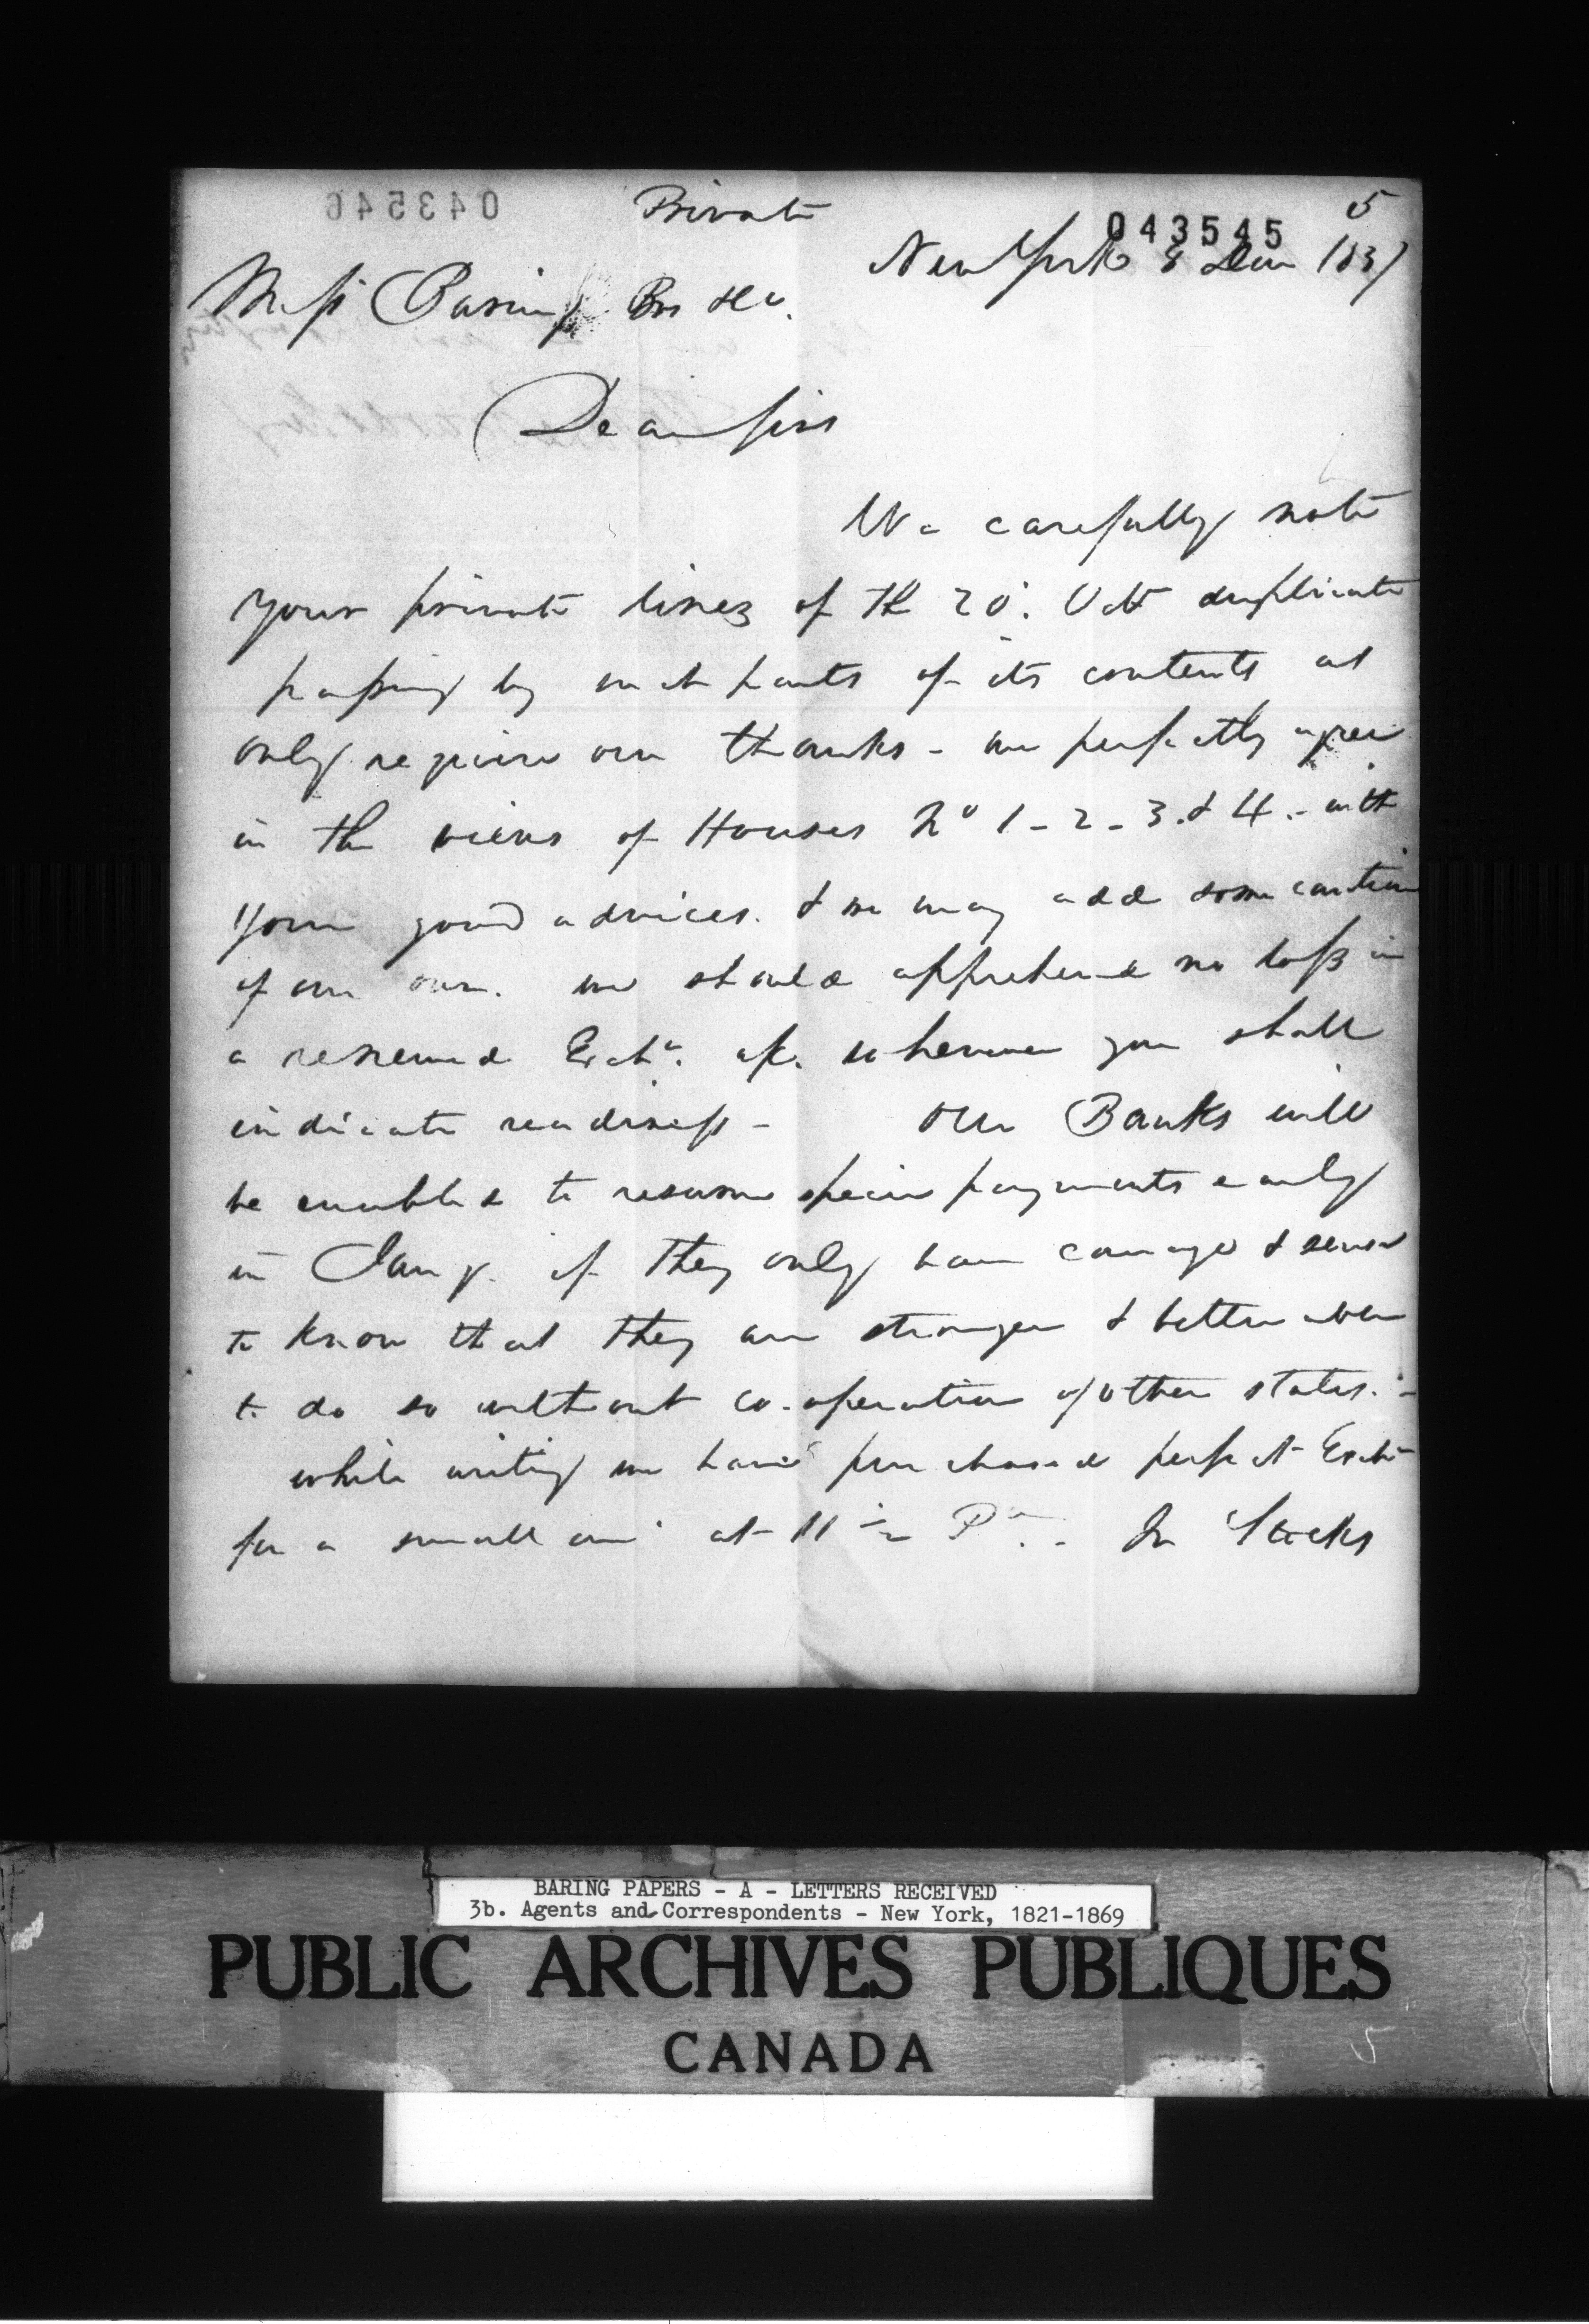 043546
Private
5
043545
New York 8 Dec 1837
Messrs Baring Bros & Co.
Dear Sirs
We carefully note
your private lines of the 20. Oct duplicate
passing by such parts of its contents as
only require our thanks - we perfectly agree
in the views of Houses No 1 - 2 - 3. & 4. - with
your good advices. & we may add some caution
of our own. we should apprehend no loss in
a renewed Exche. a/c. whenever you shall
indicate readiness - Our Banks will
be enabled to resume specie payments early
in Jany. if they only have courage & sense
to know that they are stronger & better able
to do so without co-operation of other states. -
while writing we have purchased perfect Exche
for a small at 11 In Stocks
BARING PAPERS - A - LETTERS RECEIVED
3b. Agents and Correspondents - New York, 1821-1869
PUBLIC ARCHIVES PUBLIQUES
CANADA
5